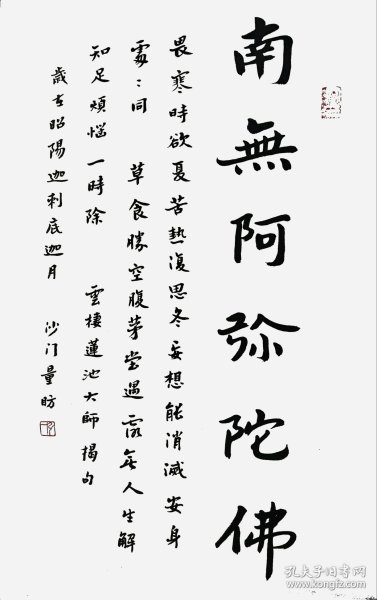 南無阿弥陀佛
畏寒時欲夏苦熱復思冬妄想能消滅安身
處〻同 草食勝空腹茅堂過露居人生解
知足煩惱一時除 雲棲蓮池大師揭句
歲在昭陽迦剌底迦月 沙门量昉
孔夫子旧书网